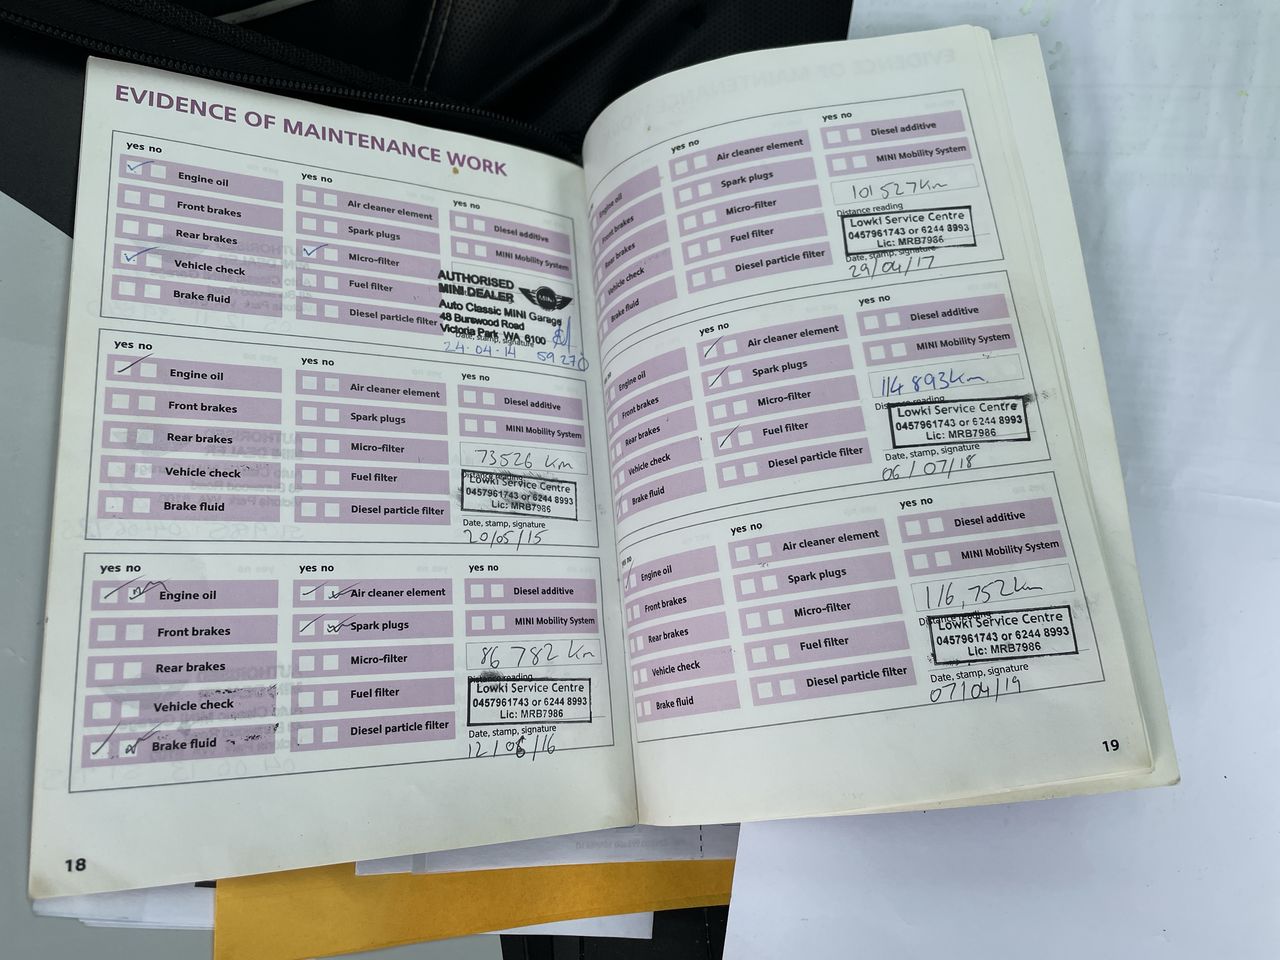 EVIDENCE OF MAINTENANCE WORK
yes no
Engine oil
Front brakes
Rear brakes
Vehicle check
Brake fluid
yes no
Air cleaner element
Spark plugs
Micro-filter
Fuel filter
Diesel particle filter
yes no
Diesel additive
MINI Mobility System
AUTHORISED
MINI DEALER
MINI
Auto Classic MINI Garage
48 Burswood Road
Victoria Park WA 6100
Date, stamp, signature
24.04.14 59270
yes no
Engine oil
Front brakes
Rear brakes
Vehicle check
Brake fluid
yes no
Air cleaner element
Spark plugs
Micro-filter
Fuel filter
Diesel particle filter
yes no
Diesel additive
MINI Mobility System
73526 km
Distance reading
Lowki Service Centre
0457961743 or 6244 8993
Lic: MRB7986
Date, stamp, signature
20/05/15
yes no
Engine oil
Front brakes
Rear brakes
Vehicle check
Brake fluid
yes no
Air cleaner element
Spark plugs
Micro-filter
Fuel filter
Diesel particle filter
yes no
Diesel additive
MINI Mobility System
86 782 km
Distance reading
Lowki Service Centre
0457961743 or 6244 8993
Lic: MRB7986
Date, stamp, signature
12/06/16
18
Engine oil
Front brakes
Rear brakes
Vehicle check
Brake fluid
yes no
Air cleaner element
Spark plugs
Micro-filter
Fuel filter
Diesel particle filter
yes no
Diesel additive
MINI Mobility System
101527km
Distance reading
Lowki Service Centre
0457961743 or 6244 8993
Lic: MRB7986
29/04/17
Engine oil
Front brakes
Rear brakes
Vehicle check
Brake fluid
yes no
Air cleaner element
Spark plugs
Micro-filter
Fuel filter
Diesel particle filter
yes no
Diesel additive
MINI Mobility System
114893km
Distance reading
Lowki Service Centre
0457961743 or 6244 8993
Lic: MRB7986
Date, stamp, signature
06/07/18
yes no
Engine oil
Front brakes
Rear brakes
Vehicle check
Brake fluid
yes no
Air cleaner element
Spark plugs
Micro-filter
Fuel filter
Diesel particle filter
yes no
Diesel additive
MINI Mobility System
116,752km
Distance reading
Lowki Service Centre
0457961743 or 6244 8993
Lic: MRB7986
Date, stamp, signature
07/04/19
19